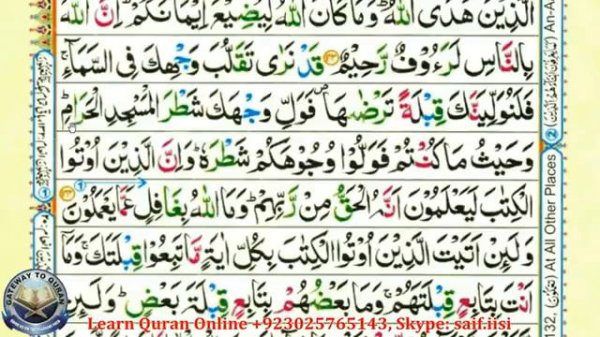 الَّذِيْنَ هَدَى اللّٰهُ ؕ وَمَا كَانَ اللّٰهُ لِيُضِيْعَ اِيْمَانَكُمْ ؕ اِنَّ اللّٰهَ
بِالنَّاسِ لَرَءُوْفٌ رَّحِيْمٌ ﴿۱۴۳﴾ قَدْ نَرٰى تَقَلُّبَ وَجْهِكَ فِى السَّمَآءِ ۚ
فَلَنُوَلِّيَنَّكَ قِبْلَةً تَرْضٰىهَا ۪ فَوَلِّ وَجْهَكَ شَطْرَ الْمَسْجِدِ الْحَرَامِ ؕ
وَحَيْثُ مَا كُنْتُمْ فَوَلُّوْا وُجُوْهَكُمْ شَطْرَهٗ ؕ وَاِنَّ الَّذِيْنَ اُوْتُوا
الْكِتٰبَ لَيَعْلَمُوْنَ اَنَّهُ الْحَقُّ مِنْ رَّبِّهِمْ ؕ وَمَا اللّٰهُ بِغَافِلٍ عَمَّا يَعْمَلُوْنَ
وَلَئِنْ اَتَيْتَ الَّذِيْنَ اُوْتُوا الْكِتٰبَ بِكُلِّ اٰيَةٍ مَّا تَبِعُوْا قِبْلَتَكَ ۚ وَمَآ
اَنْتَ بِتَابِعٍ قِبْلَتَهُمْ ۚ وَمَا بَعْضُهُمْ بِتَابِعٍ قِبْلَةَ بَعْضٍ ؕ وَلَئِنِ
132, At All Other Places
An-A
GATEWAY TO QURAN
Learn Quran Online +923025765143, Skype: saif.iisi